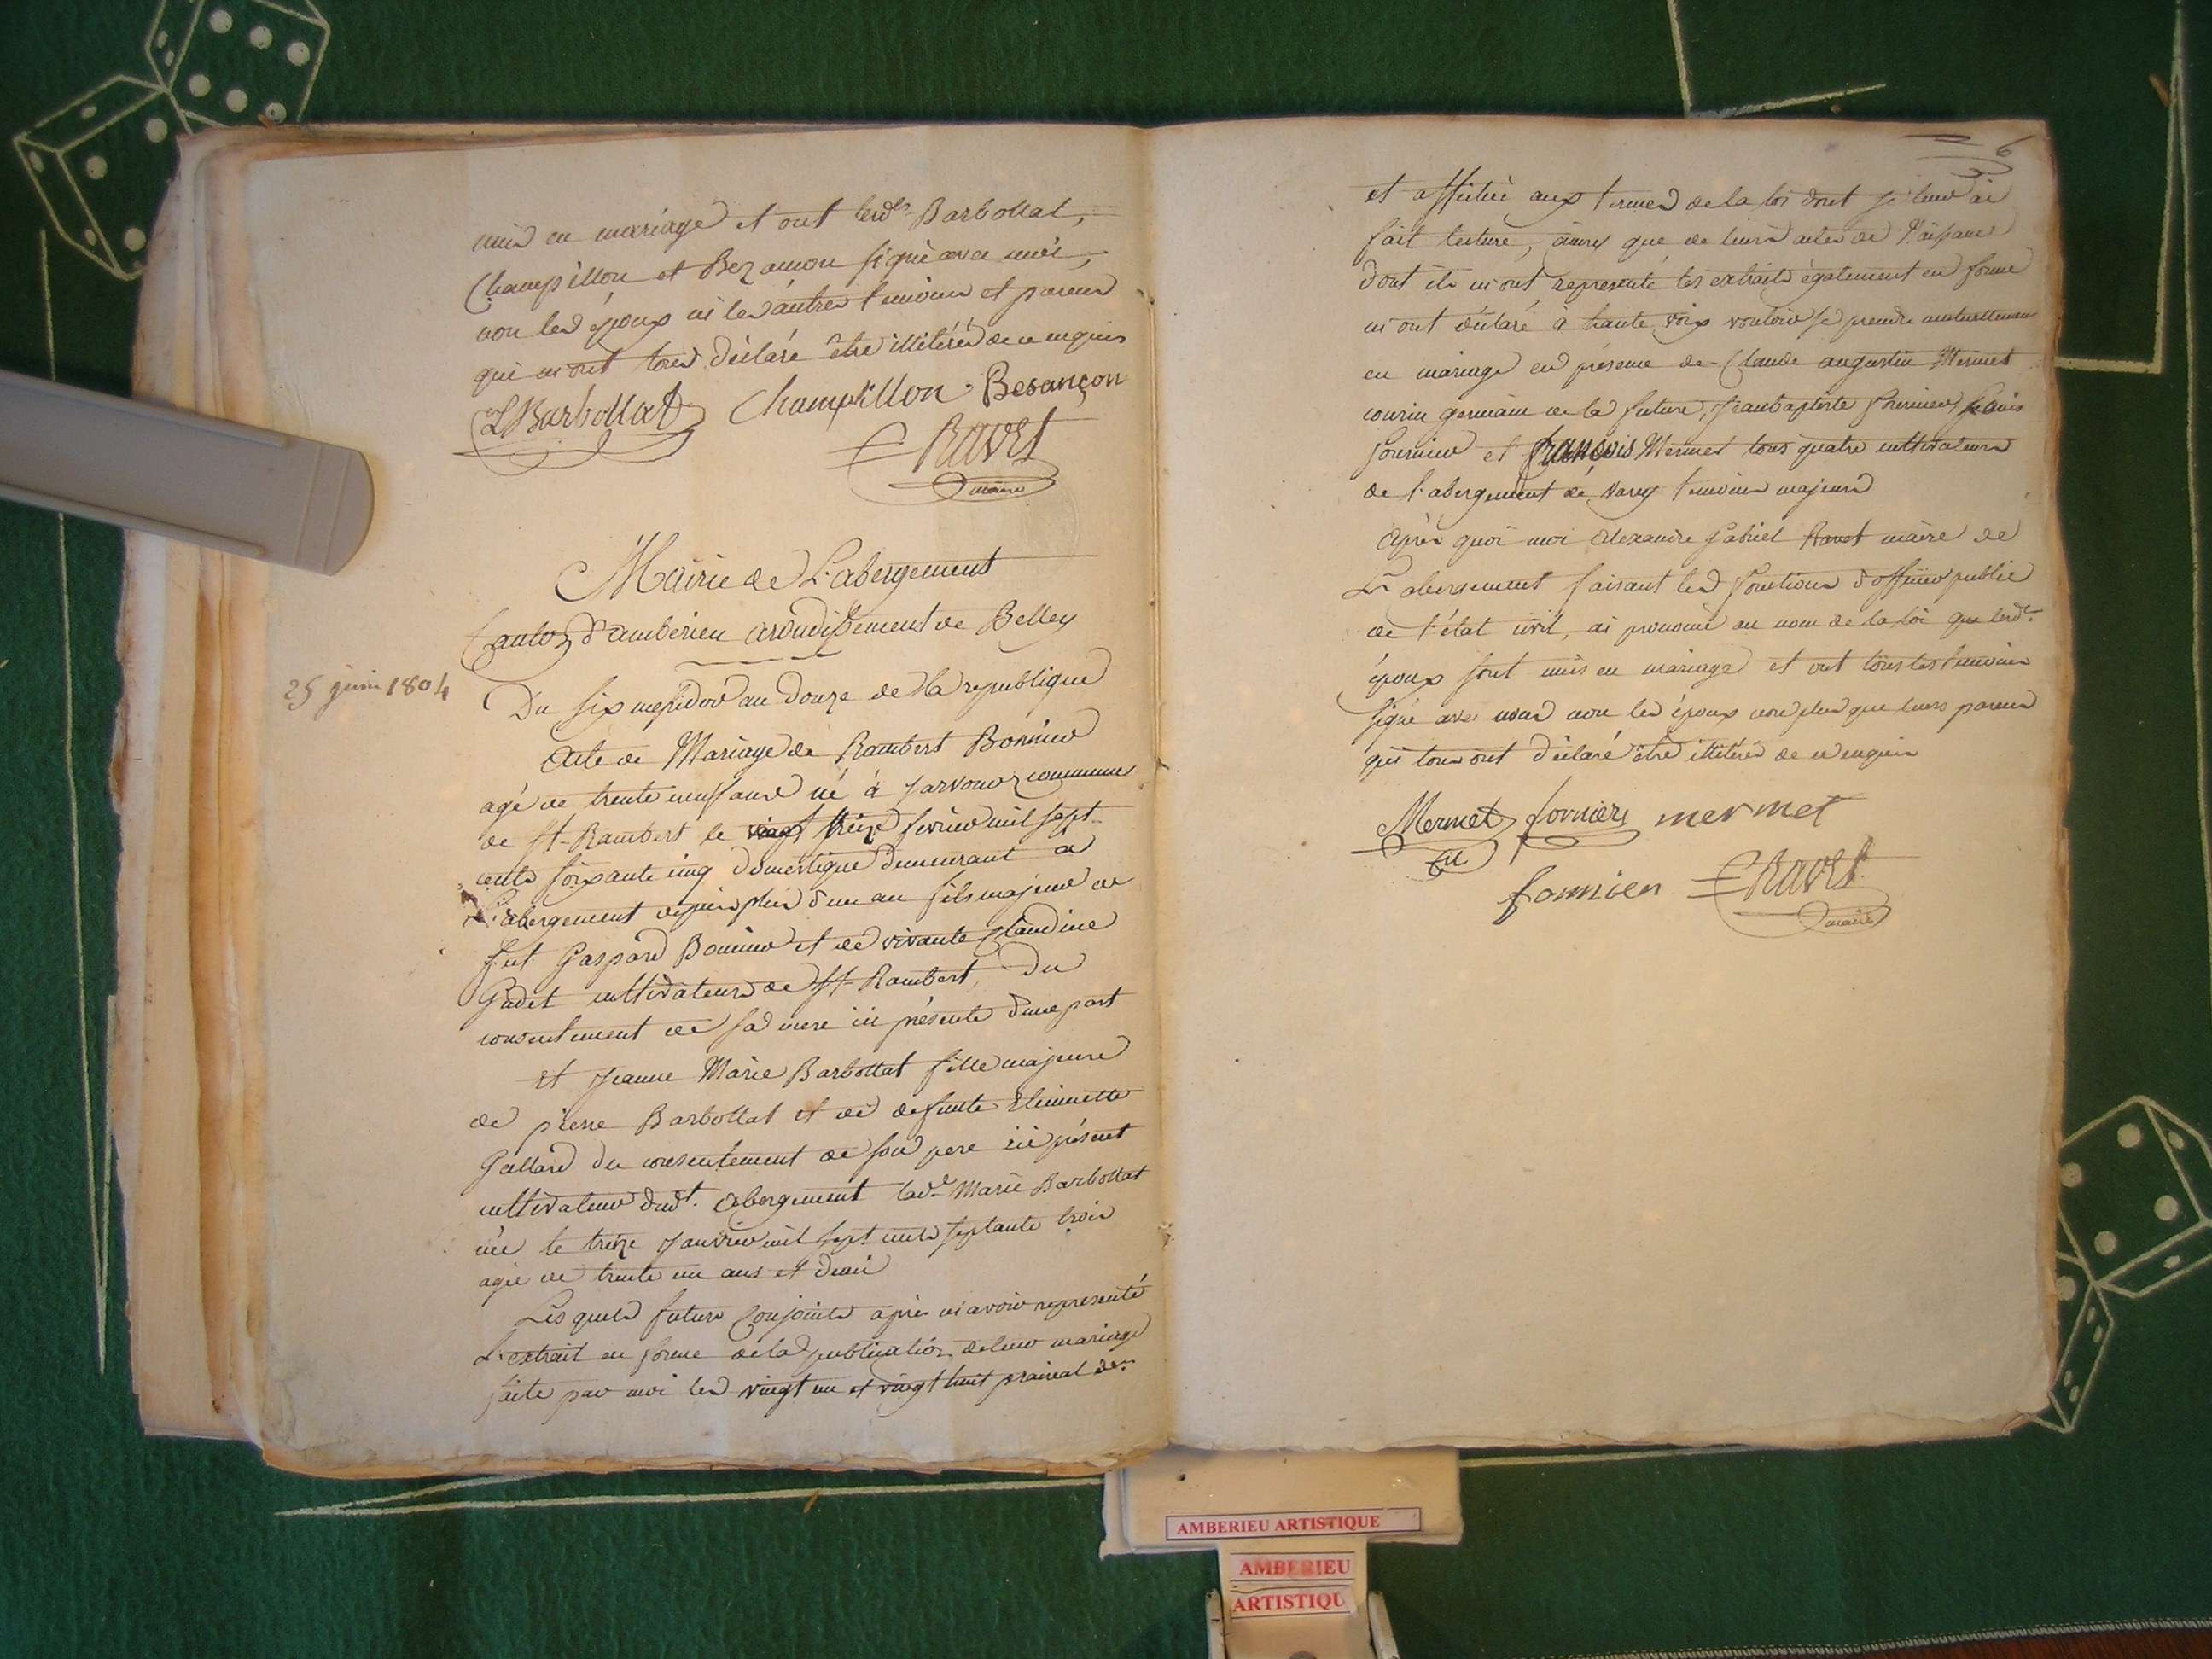 unis en mariage et ont lesdts Barbollat,
Champillon et Bezancon signé avec moi,
non les époux ni les autres temoins et parens
qui m'ont tous déclaré être illitérés de ce enquis
Barbollat Champillon Besançon
Ravet
maire
Mairie de L'abergement
Canton d'amberieu arondissement de Belley
25 juin 1804
Du six messidor an douze de la republique
Acte de Mariage de Rambert Bonnier
agé de trente neuf ans né à Javornoz commune
de St-Rambert le treize fevrier mil sept
cents soixante cinq domestique demeurant a
L'abergement depuis plus d'un an fils majeur de
fut Gaspard Bonnier et de vivante Claudine
Gudet cultivateurs de St-Rambert, du
consentement de sa mere ici présente d'une part
et Jeanne Marie Barbollat fille majeure
de pierre Barbollat et de defunte Etiennette
Gallard du consentement de son pere ici présent
cultivateur dudt. abergement lade Marie Barbollat
née le treize Janvier mil sept cents septante trois
agée de trente un ans et demi
Les quels futurs conjoints après m'avoir representé
L'extrait en forme de la publication de leur mariage
faite par moi les vingt un et vingt huit prairial der
6
et affichée aux termes de la loi dont je leur ai
fait lecture, ainsy que de leurs actes de naissance
dont ils m'ont representé les extraits également en forme
m'ont déclaré à haute voix vouloir se prendre mutuellement
en mariage en présence de Claude augustin Mermet
cousin germain de la future, Jeanbaptiste fournier, Louis
fournier et françois Mermet tous quatre cultivateurs
de l'abergement de Varey temoins majeurs
Après quoi moi Alexandre Gabriel Ravet maire de
L'abergement faisant les fonctions d'officier public
de l'état civil, ai prononcé au nom de la loi que lesdts
époux sont unis en mariage et ont tous les temoins
signé avec nous non les époux non plus que leurs parens
qui tous ont déclaré être illitérés de ce enquis
Mermet fornier mermet
fornier Ravet
maire
AMBERIEU ARTISTIQUE
AMBERIEU
ARTISTIQU